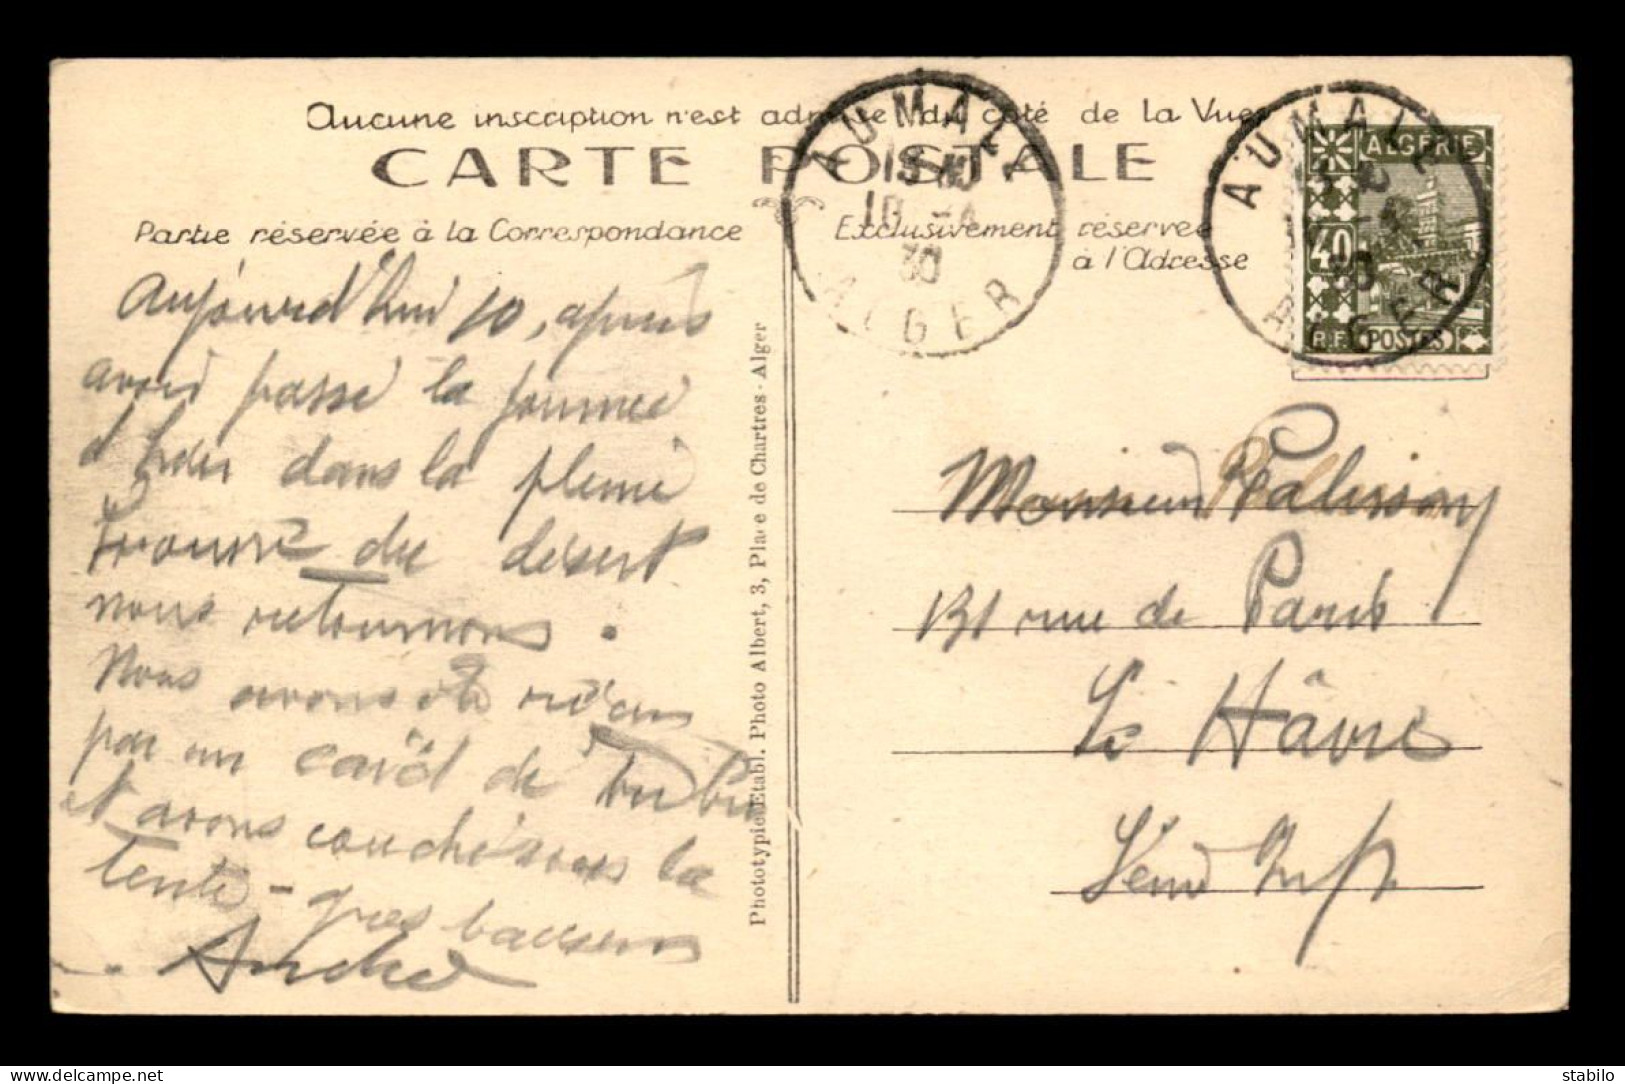 Aucune inscription n'est admise du côté de la Vue
CARTE POSTALE
Partie réservée à la Correspondance
Exclusivement réservée
à l'Adresse
AUMALE
10 -4
30
ALGER
AUMALE
30
ALGER
ALGERIE
40
R.F. POSTES
Aujourd'hui 10, après
avoir passé la journée
d'hier dans la pleine
du désert
nous retournons.
Nous avons été reçus
par un caïd de tribu
et avons couché sous la
tente - gros baisers
André
Phototypie Etabl. Photo Albert, 3, Place de Chartres - Alger
Monsieur Palissay
131 rue de Paris
Le Hâvre
Seine Infre
stabilo